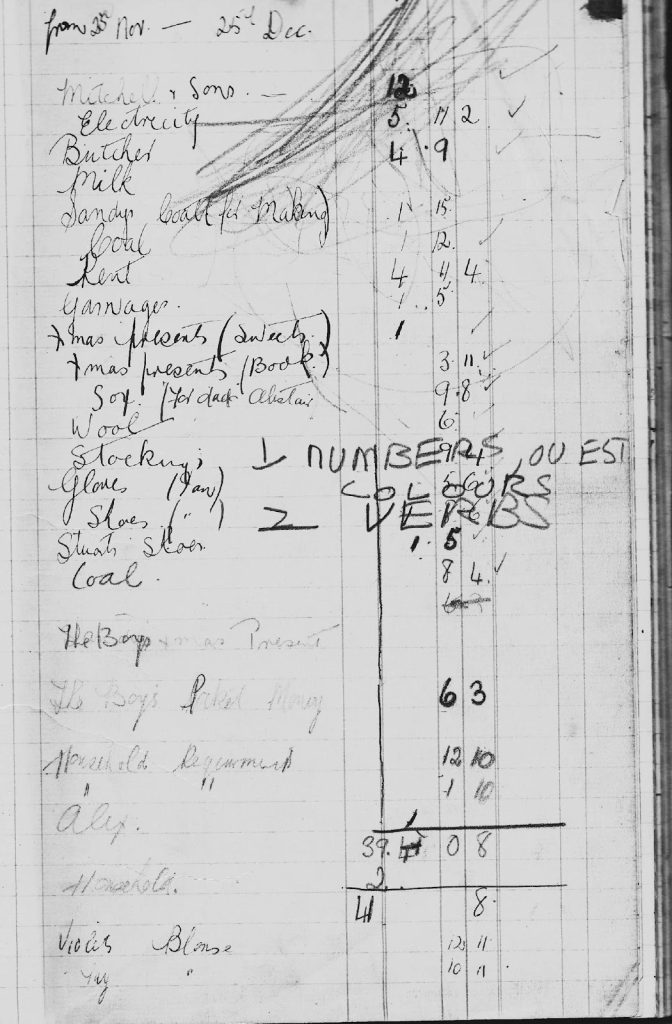 from 25th Nov. — 25th Dec.
Mitchell & Sons. — 12
Electricity 5. 17 2 ✓
Butcher 4 9
Milk
Sandys Coat (for Making) 1 15
Coal 1 12. ✓
Rent 4 4 4
Garwages. 1 5
Xmas presents (Sweets.) 1
Xmas presents (Book.) 3 11. ✓
9. 8 ✓
Wool 6
Stockings 9 4
1 NUMBERS, OU EST
Gloves (Ian) 5 6
COLOURS
Shoes ( " )
2 VERBS
Stuarts Shoes. 1. 5
Coal. 8 4. ✓
The Boys Xmas Present
The Boy's Pocket Money 6 3
Household 12 10
" " 1 10
Alex. 1
39. 0 8
Household. 2.
41 8.
Violets Blouse 12 11
" 10 11